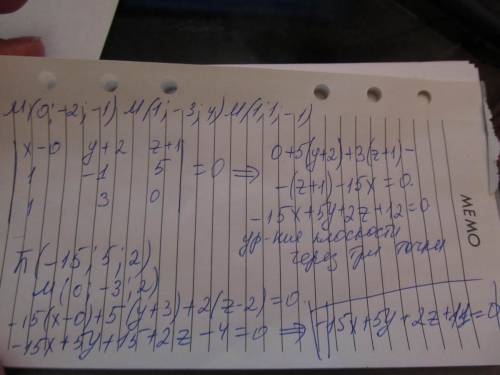 M(0; -2; -1) M(1; -3; 4) M(1; 1; -1)
|x-0 y+2 z+1|
|1 -1 5| =0 ⇒
|1 3 0|
0+5(y+2)+3(z+1)-
-(z+1)-15x=0.
-15x+5y+2z+12=0
ур-ние плоскости
через три точки
n̄(-15; 5; 2)
M(0; -3; 2)
-15(x-0)+5(y+3)+2(z-2)=0.
-15x+5y+15+2z-4=0 ⇒ -15x+5y+2z+11=0
MEMO